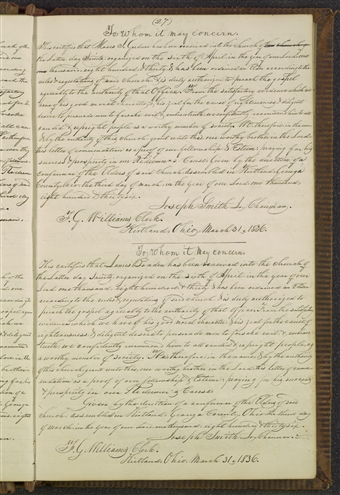 (27)
To Whom it may concern.
This certifies that has been received into the church of
the Latter day Saints, organized on the sixth of April in the year of our Lord one
thousand, eight hundred & thirty, & has been ordained an Elder according to the
rules & regulations of said church, & is duly authorized to preach the gospel
agreeably to the authority of that office. From the satisfactory evidence which we
have of his good moral character, & his zeal for the cause of righteousness, & diligent
desire to persuade men to forsake evil & embrace truth, we confidently recommend him to all
candid & upright people as a worthy member of society. We therefore, in the name,
& by the authority of this church, grant unto this, our worthy brother in the Lord,
this letter of commendation as a proof of our fellowship & Esteem: praying for his
success & prosperity in our Redeemer's Cause. Given by the direction of a
conference of the Elders of said church assembled in Kirtland, Geauga
County, Ohio, the third day of March in the year of our Lord one thousand,
eight hundred & thirty six.
Joseph Smith Jr, Chairman.
F. G. Williams Clerk.
Kirtland, Ohio, March 31, 1836.
To Whom it May concern
This certifies that has been received into the church of
the Latter day Saints, organized on the sixth of April in the year of our
Lord one thousand, eight hundred & thirty, & has been ordained an Elder
according to the rules & regulations of said church, & is duly authorized to
preach the gospel agreeably to the authority of that office. From the satisfactory
evidence which we have of his good moral character, & his zeal for the cause of
righteousness, & diligent desire to persuade men to forsake evil & embrace
truth, we confidently recommend him to all candid & upright people as
a worthy member of society. We therefore, in the name, & by the authority
of this church, grant unto this, our worthy brother in the Lord, this letter of com-
mendation as a proof of our fellowship & Esteem: praying for his success
& prosperity in our Redeemer's Cause.
Given by the direction of a conference of the Elders of said
church assembled in Kirtland, Geauga County, Ohio, the third day
of March in the year of our Lord one thousand, eight hundred & thirty six.
Joseph Smith Jr, Chairman.
F. G. Williams Clerk.
Kirtland, Ohio, March 31, 1836.